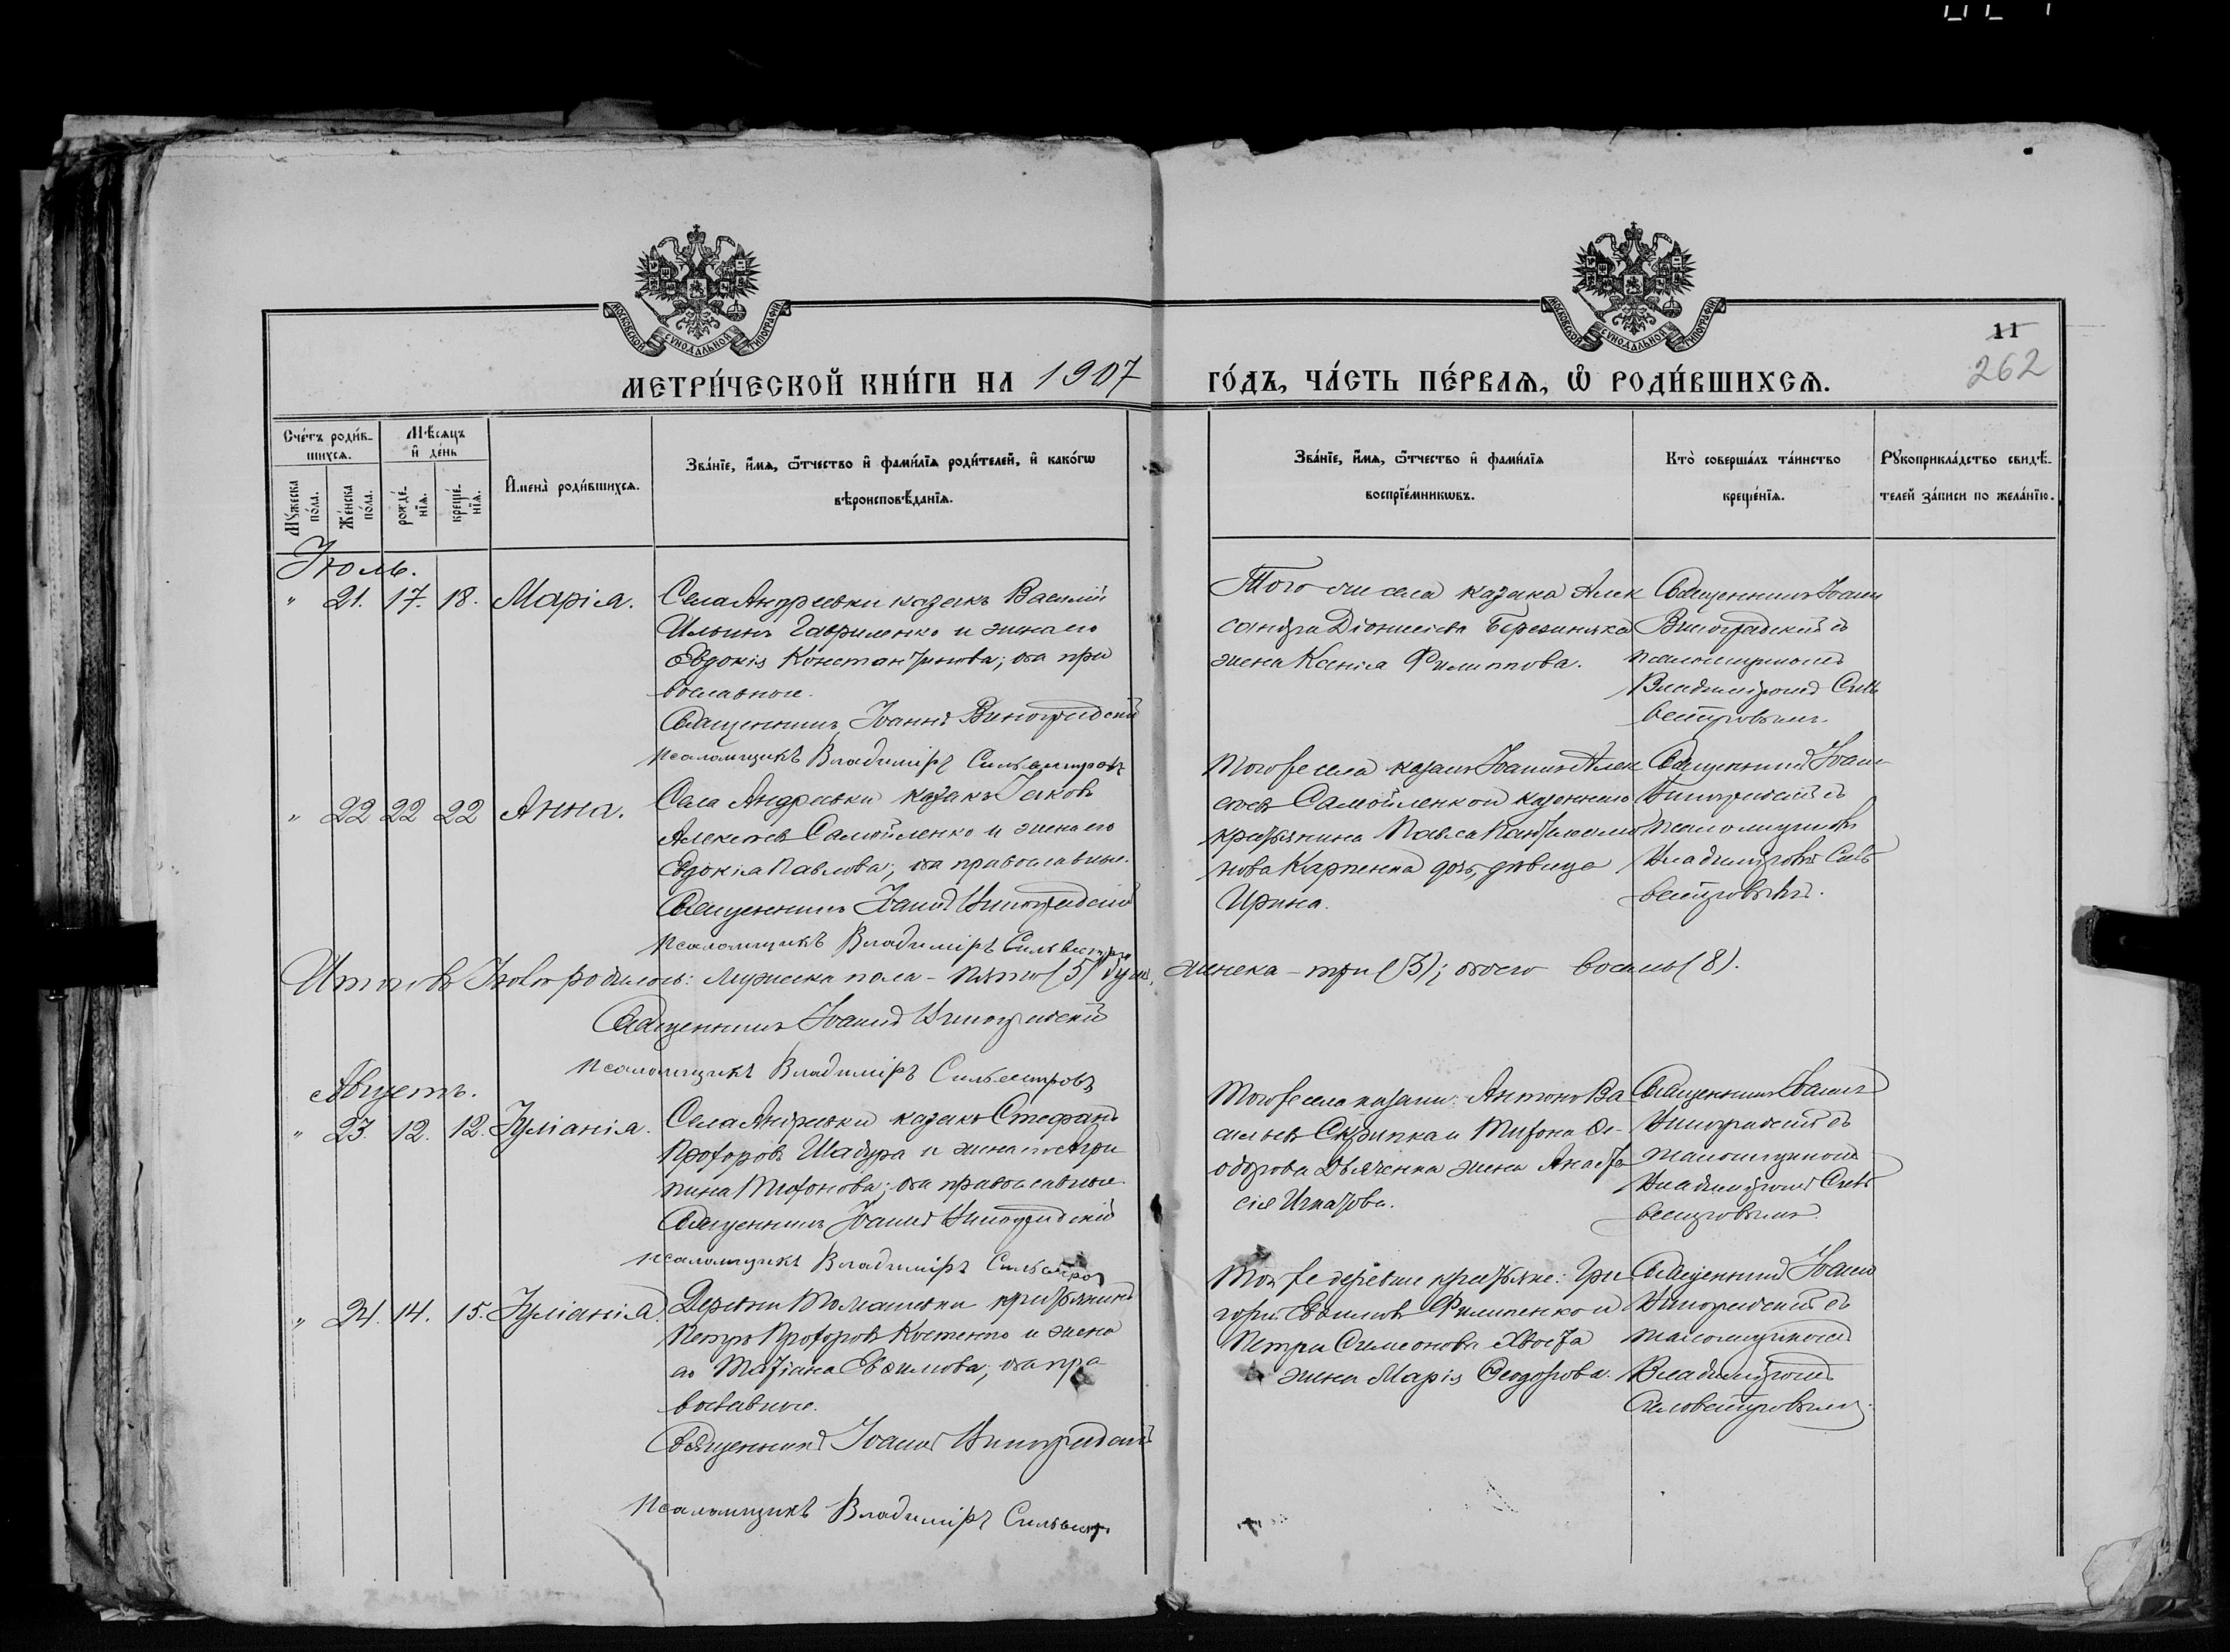 МЕТРИ́ЧЕСКОЙ КНИ́ГИ НА 1907 ГО́ДЪ, ЧА́СТЬ ПЕ́РВАѦ, Ѿ РОДИ́ВШИХСѦ.
11
262
МОСКОВСКОЙ СѴНОДАЛЬНОЙ ТИПОГРАФІИ
МОСКОВСКОЙ СѴНОДАЛЬНОЙ ТИПОГРАФІИ
Сче́тъ роди́в-
шихсѧ.
Мꙋжеска по́ла.
Же́нска по́ла.
Мѣ́сѧцъ
и҆ де́нь
рожде́-
нїѧ.
креще́-
нїѧ.
И҆мена̀ роди́вшихсѧ.
Зва́нїе, и҆́мѧ, ѻ҆́тчество и҆ фами́лїѧ роди́телей, и҆ како́гѡ
вѣроисповѣ́данїѧ.
Зва́нїе, и҆́мѧ, ѻ҆́тчество и҆ фами́лїѧ
воспрїе́мникѡвъ.
Кто̀ соверша́лъ та́инство
креще́нїѧ.
Рꙋкоприкла́дство свидѣ́-
телей за́писи по жела́нїю.
Іюль.
" 21. 17. 18. Марія.
Села Андреевки казакъ Василій
Ильинъ Гавриленко и жена его
Евдокія Константинова; оба пра
вославные.
Священникъ Іоаннъ Виноградскій
Псаломщикъ Владиміръ Сильвестровъ
Того же села казака Алек
сандра Діонисіева Березиняка
жена Ксенія Филиппова.
Священникъ Іоаннъ
Виноградскій съ
псаломщикомъ
Владиміромъ Силь
вестровымъ.
" 22 22 22 Анна.
Села Андреевки казакъ Іаковъ
Алексѣевъ Самойленко и жена его
Евдокія Павлова; оба православные.
Священникъ Іоаннъ Виноградскій
Псаломщикъ Владиміръ Сильвестро
Того же села казакъ Іоаннъ Алек
сѣевъ Самойленко и казеннаго
крестьянина Павла Пантелеимо
нова Карпенка дочь, дѣвица
Ирина.
Священникъ Іоаннъ
Виноградскій съ
псаломщикомъ
Владиміромъ Силь
вестровымъ.
Итого въ Іюлѣ родилось: мужеска пола - пять (5) душ, женска - три (3); обоего восемь (8).
Священникъ Іоаннъ Виноградскій
Псаломщикъ Владиміръ Сильвестровъ
Августъ.
" 23. 12. 12. Іуліанія.
Села Андреевки казакъ Стефанъ
Прохоровъ Шадура и жена его Агри
пина Тифонова; оба православные.
Священникъ Іоаннъ Виноградскій
Псаломщикъ Владиміръ Сильвестров
Того же села казаки: Антонъ Ва
сильевъ Скрипка и Тифона Ѳе-
одорова Дьяченка жена Анаста
сія Игнатова.
Священникъ Іоаннъ
Виноградскій съ
псаломщикомъ
Владиміромъ Силь
вестровымъ.
" 24. 14. 15. Іуліанія.
Деревни Томашевки крестьянинъ
Петръ Прохоровъ Костенко и жена
его Татіана Евѳимова; оба пра
вославные.
Священникъ Іоаннъ Виноградскій
Псаломщикъ Владиміръ Сильвестр
Той же деревни крестьяне: Гри
горій Евѳимовъ Филипенко и
Петра Симеонова Хвоста
жена Марія Ѳеодорова.
Священникъ Іоаннъ
Виноградскій съ
псаломщикомъ
Владиміромъ
Сильвестровымъ.